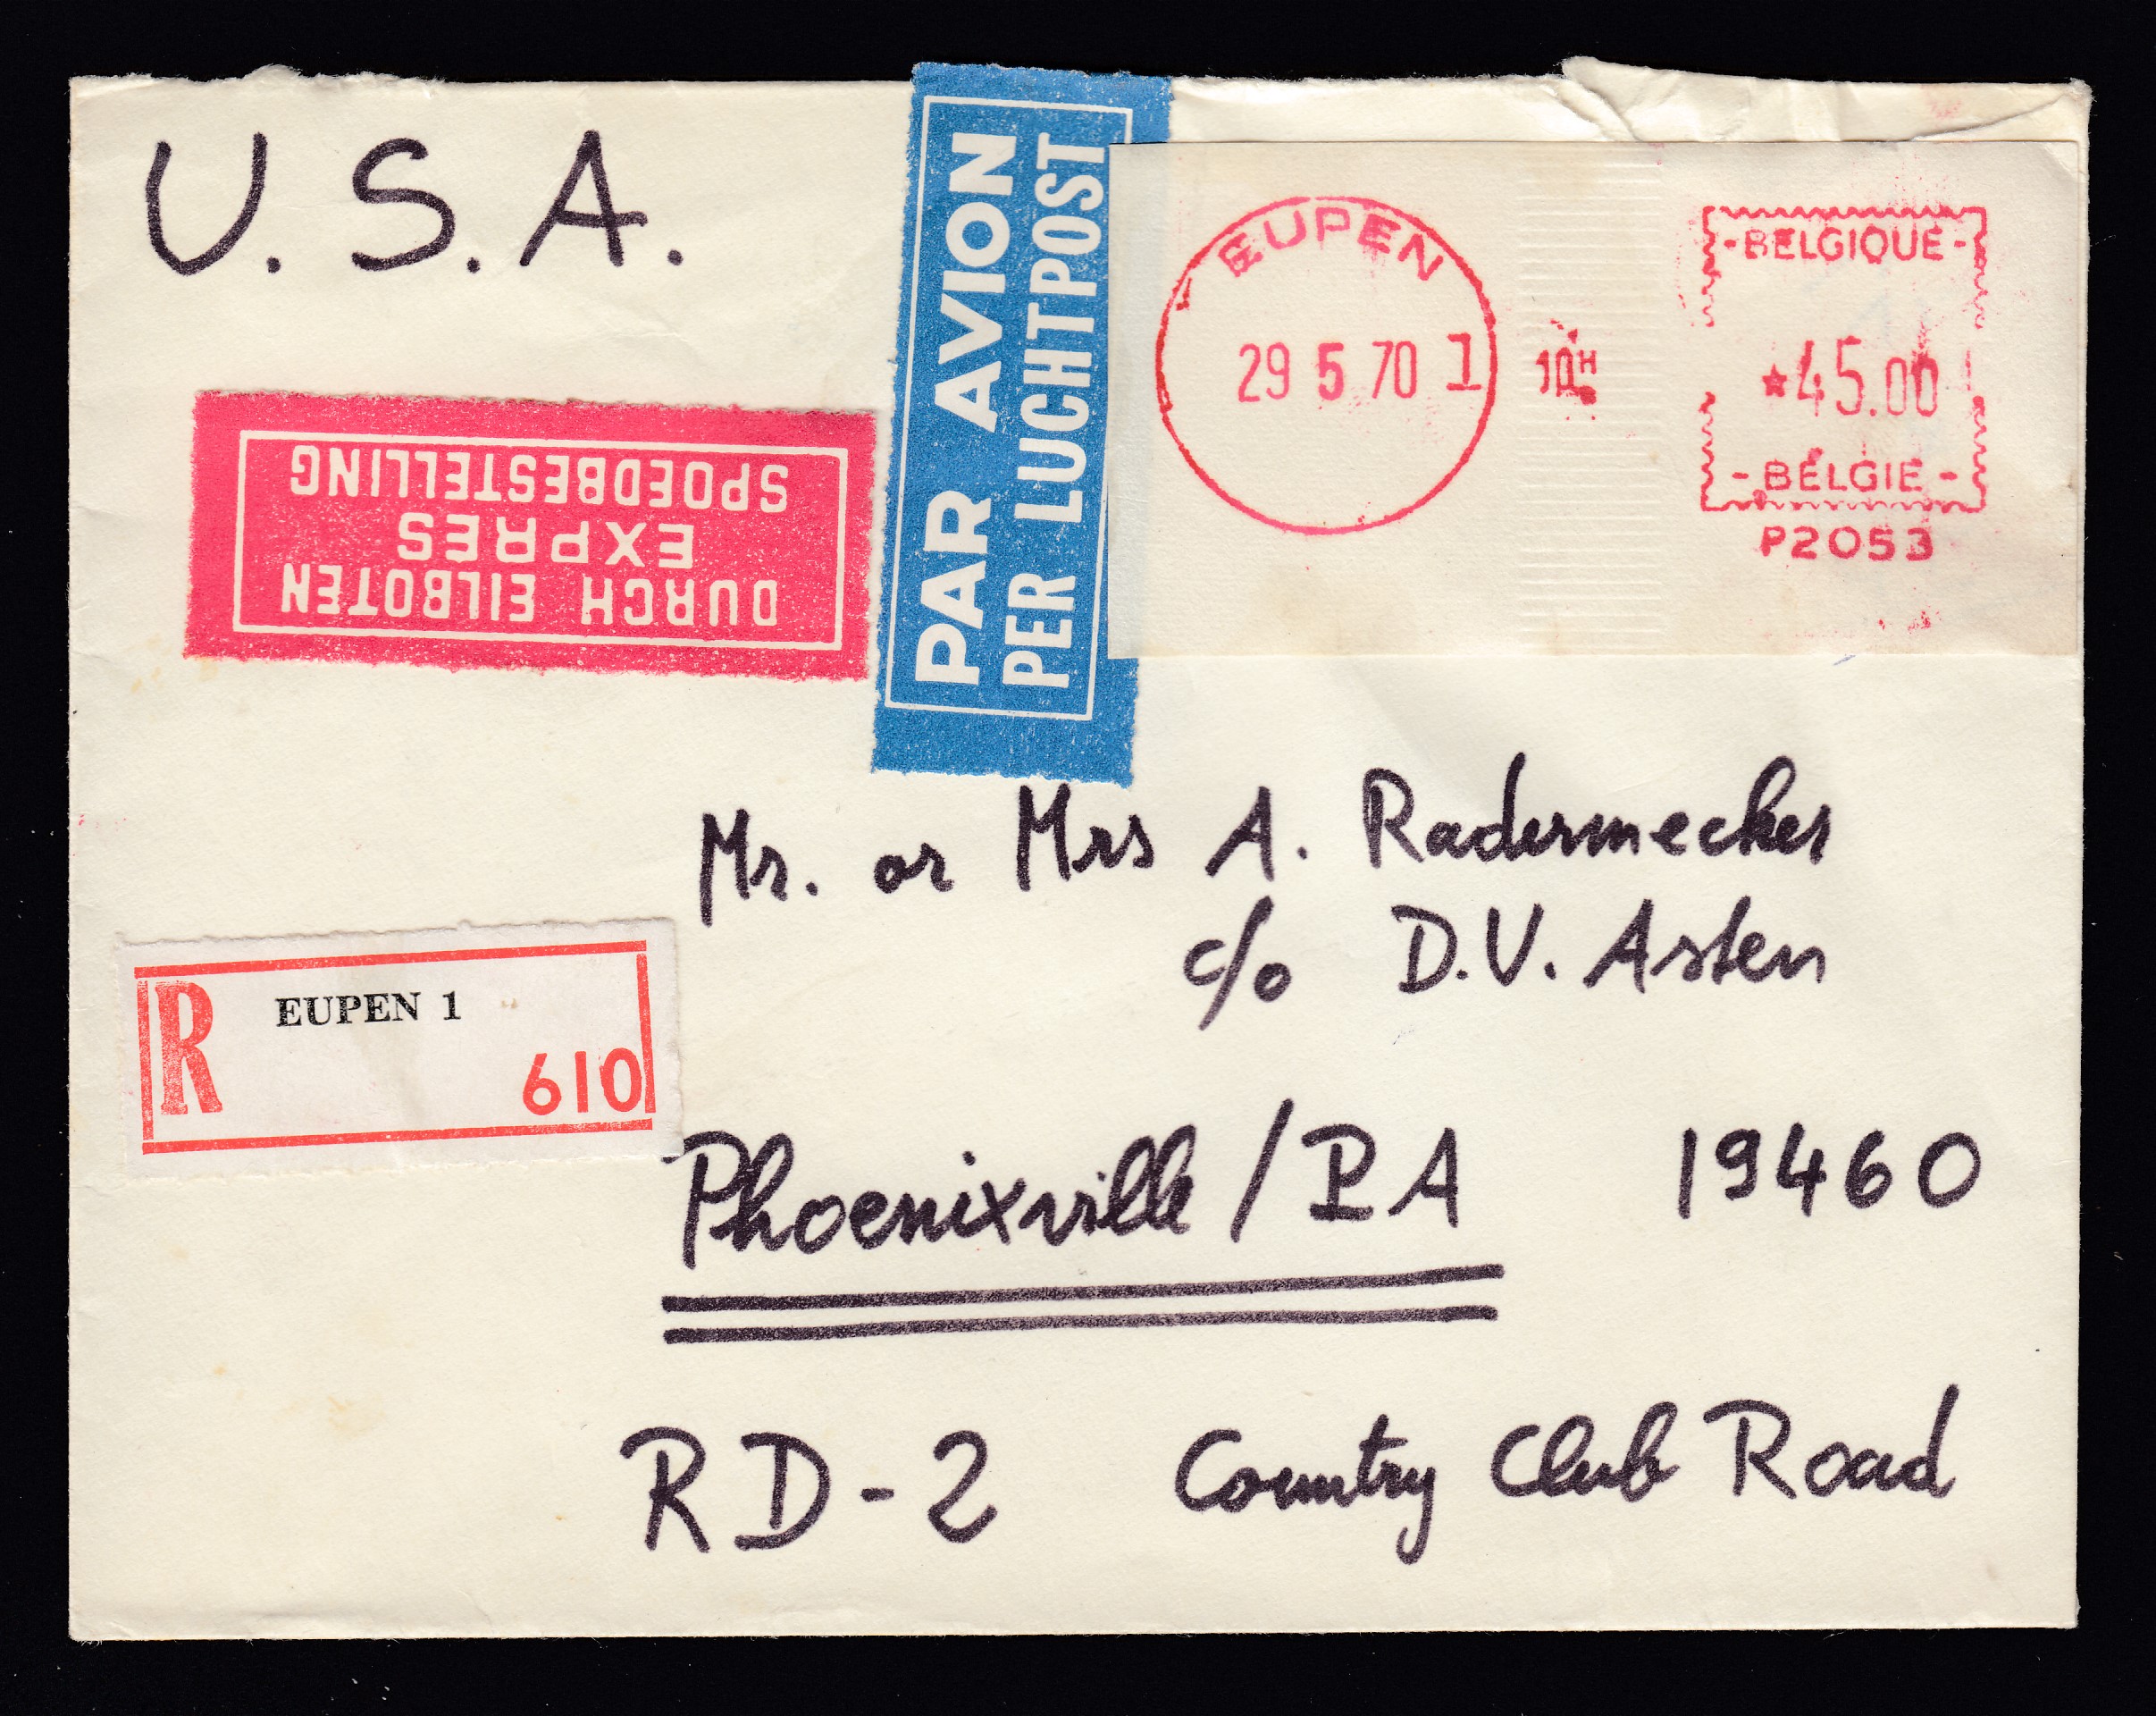 U.S.A.
PAR AVION
PER LUCHTPOST
EUPEN
29 5 70 1
10H
- BELGIQUE -
*45.00
- BELGIE -
P2053
DURCH EILBOTEN
EXPRES
SPOEDBESTELLING
Mr. or Mrs A. Radermecker
c/o D.V. Asten
R EUPEN 1
610
Phoenixville / PA 19460
RD-2 Country Club Road